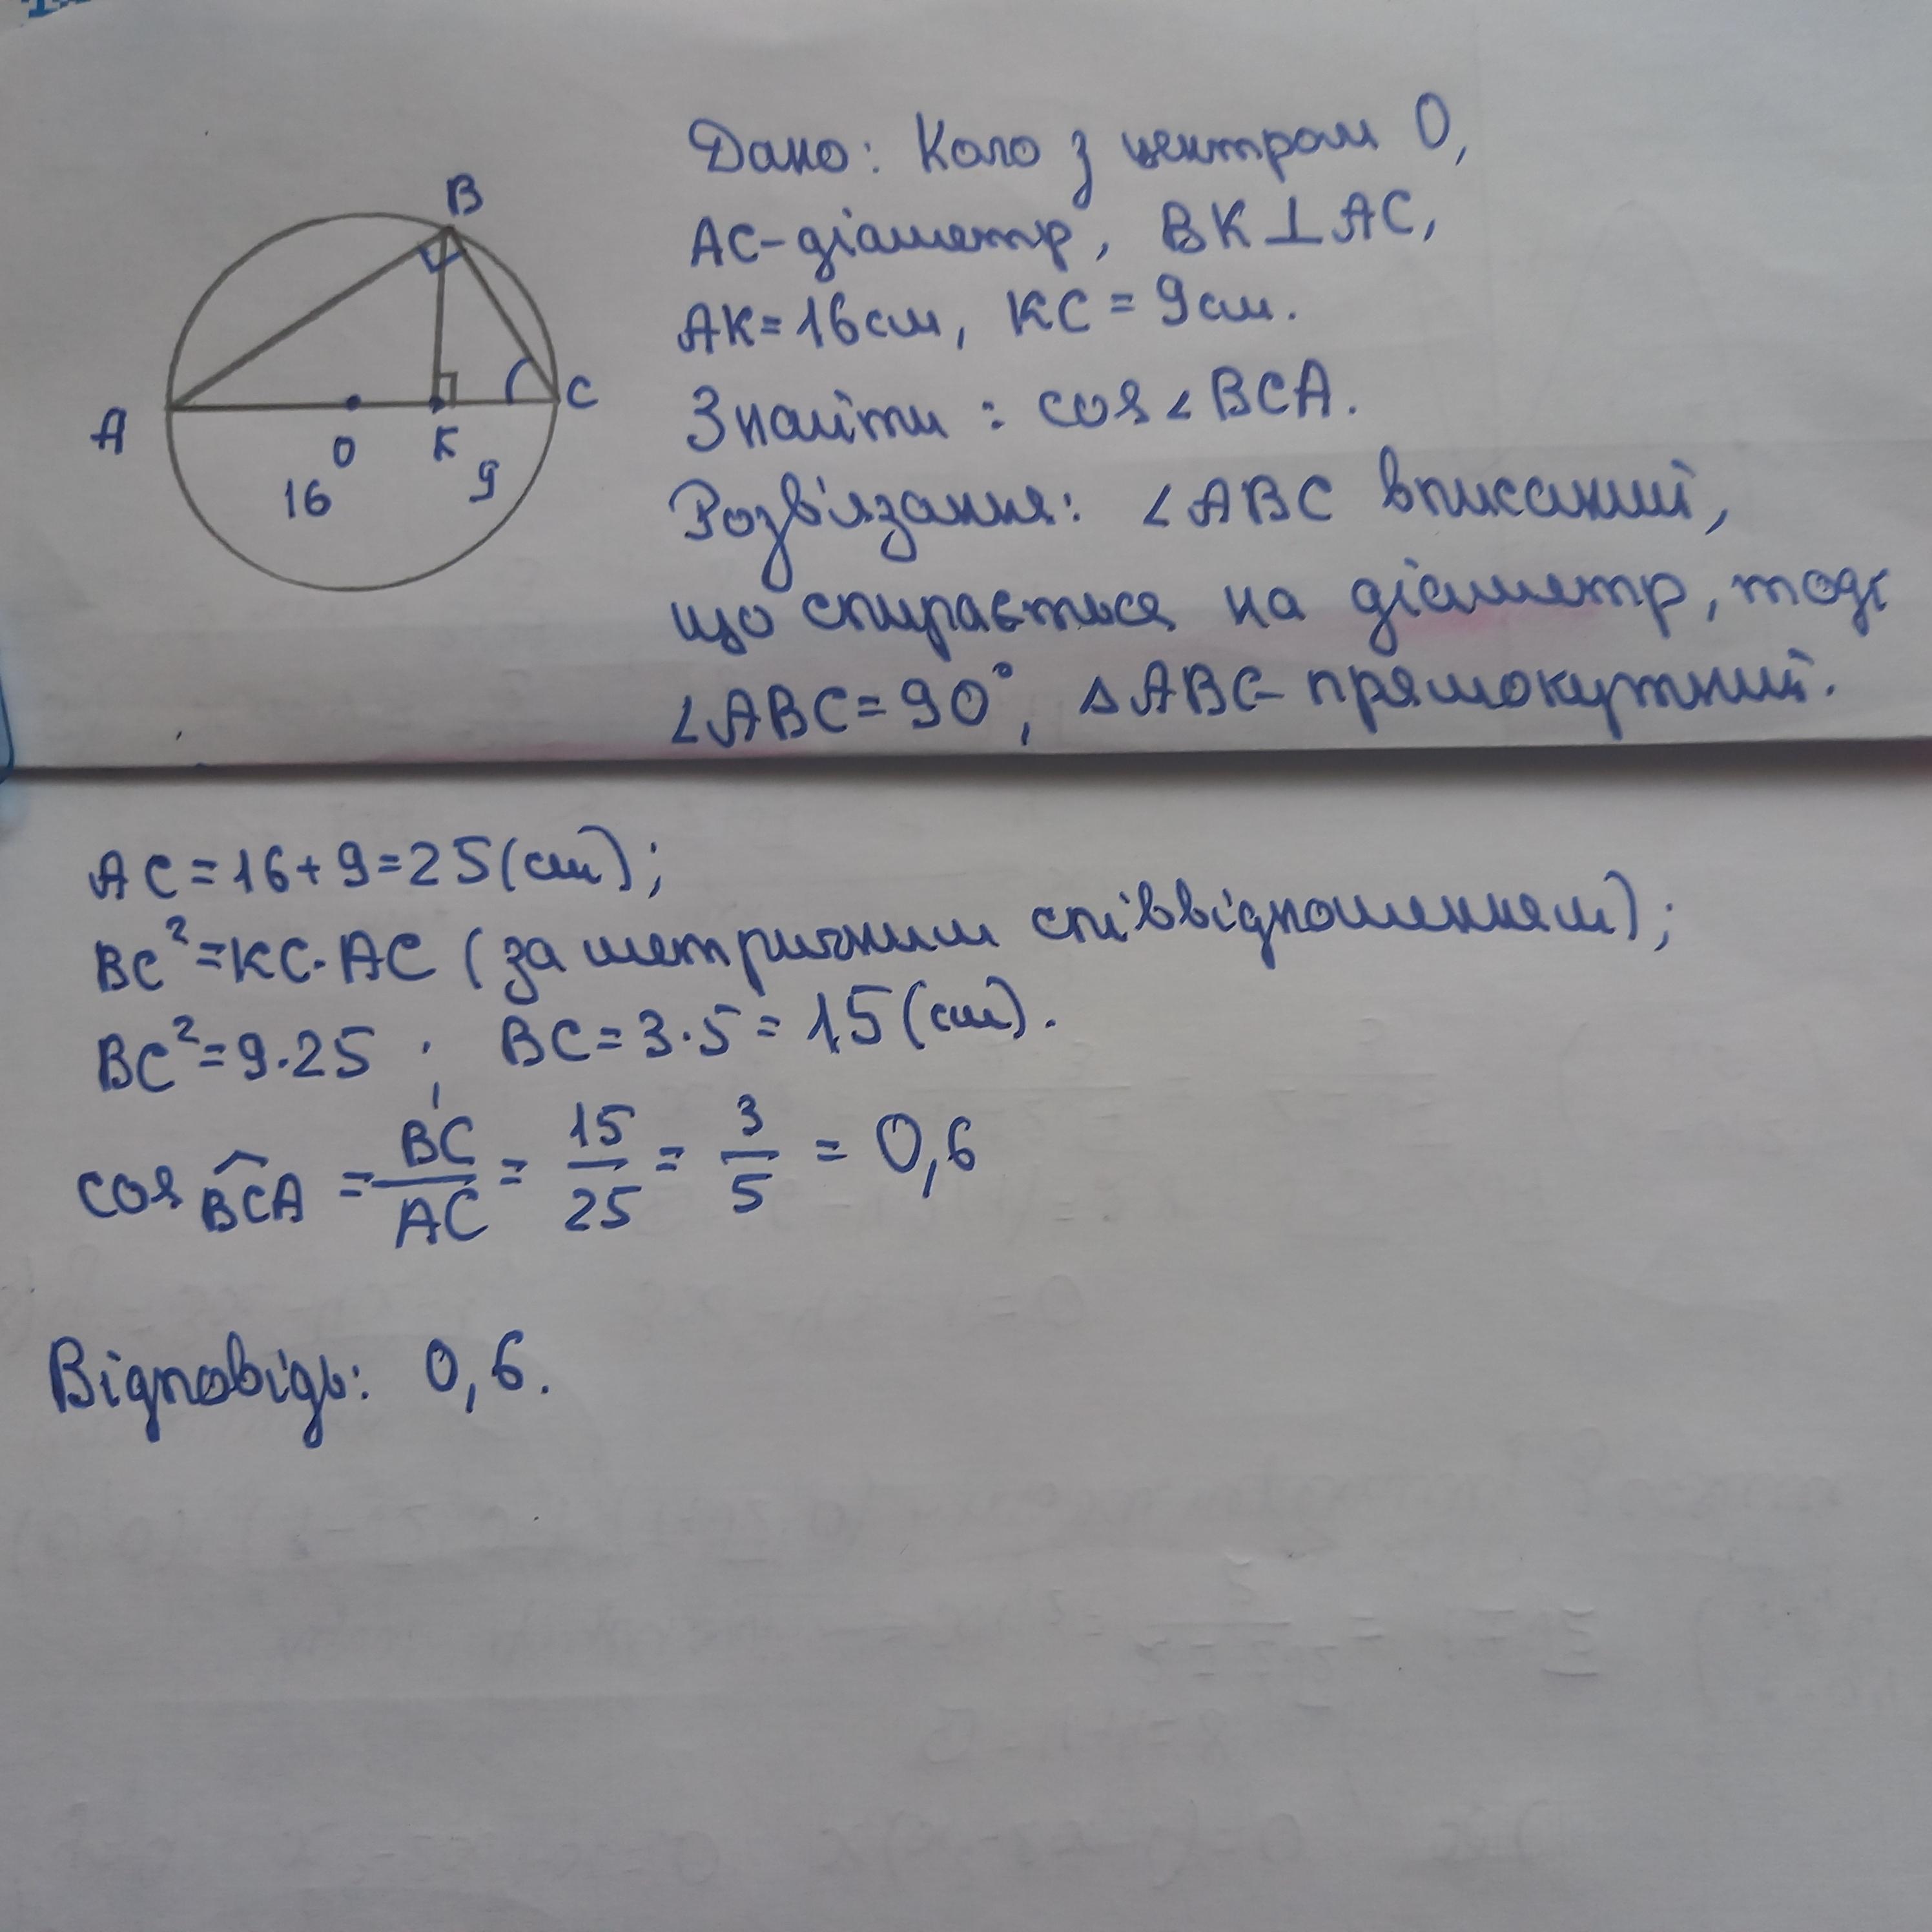 B
A
O
K
C
16
9
Дано: Коло з центром O,
AC-діаметр, BK⊥AC,
AK=16см, KC=9см.
Знайти: cos∠BCA.
Розв'язання: ∠ABC вписаний,
що спирається на діаметр, тоді
∠ABC=90°, △ABC- прямокутний.
AC=16+9=25(см);
BC²=KC·AC (за метричним співвідношенням);
BC²=9·25; BC=3·5=15(см).
cos BCA = BC/AC = 15/25 = 3/5 = 0,6
Відповідь: 0,6.